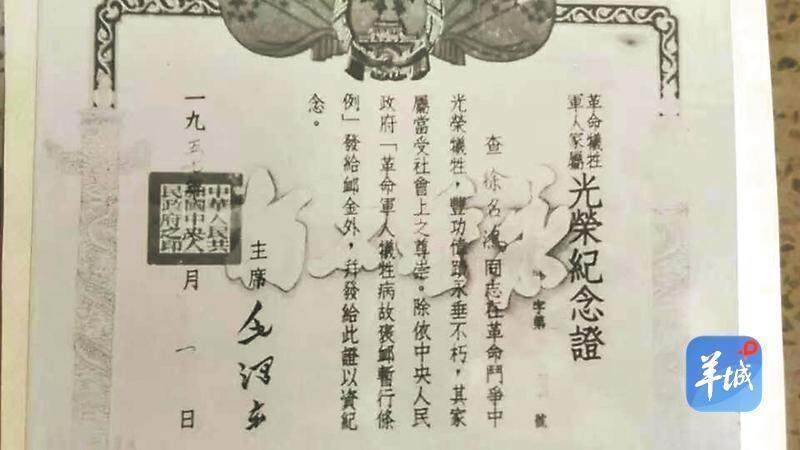 革命犧牲
軍人家屬
光榮紀念證
字第 號
查徐名鴻同志在革命鬥爭中
光榮犧牲，豐功偉蹟永垂不朽，其家
屬當受社會上之尊崇。除依中央人民
政府「革命軍人犧牲病故褒卹暫行條
例」發給卹金外，幷發給此證以資紀
念。
主席 毛澤東
一九五 月一日
中華人民共
和國中央人
民政府之印
羊城